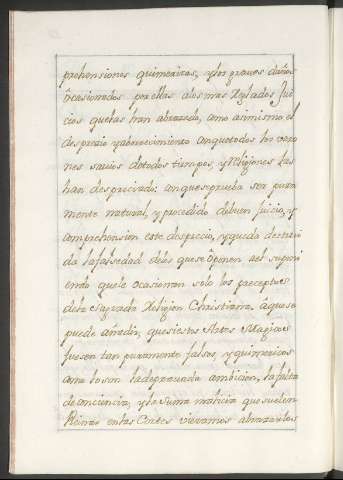 prehensiones quimericas, y los graves daños
ocasionados por ellas a los mas Reglados Jui
cios que las han abrazado, como asimismo el
desprecio y aborrecimiento con que todos los varo
nes savios de todos tiempos, y Religiones las
han despreciado: con que se prueba ser pura
mente natural, y procedido de buen juicio, y
comprehension este desprecio, y queda destrui
da la falsedad de los que se oponen a el suponi
endo que le ocasionan solo los preceptos
de la Sagrada Religion Christiana. a que se
puede añadir, que si estas Artes Magicas
fuesen tan puramente falsas, y quimericas
como lo son la depravada ambicion, la falta
de conciencia, y la suma malicia que suelen
Reinar en las Cortes vieramos abrazarlas